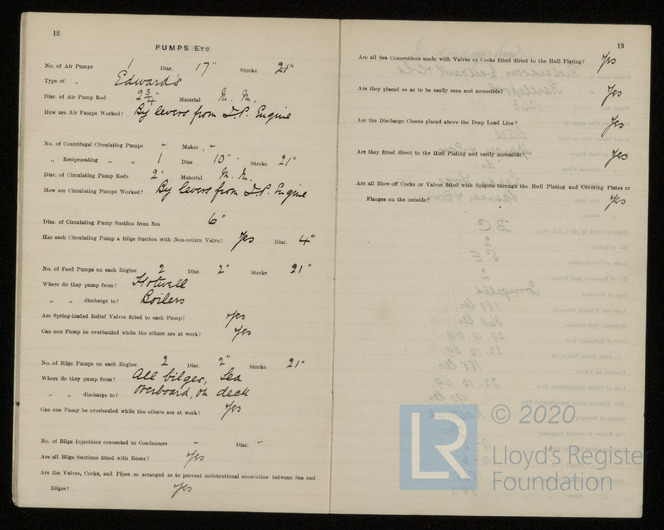 12
PUMPS, ETC.
No. of Air Pumps 1 Diar. 17" Stroke 21"
Type of " Edward's
Diar. of Air Pump Rod 2 3/4" Material M. M.
How are Air Pumps Worked? By levers from I.P. Engine
No. of Centrifugal Circulating Pumps - Maker -
" Reciprocating " " 1 Diar. 10" Stroke 21"
Diar. of Circulating Pump Rods 2" Material M. M.
How are Circulating Pumps Worked? By levers from I.P. Engine
Diar. of Circulating Pump Suction from Sea 6"
Has each Circulating Pump a Bilge Suction with Non-return Valve? Yes Diar. 4"
No. of Feed Pumps on each Engine 2 Diar. 2" Stroke 21"
Where do they pump from? Hotwell
" " discharge to? Boilers
Are Spring-loaded Relief Valves fitted to each Pump? Yes
Can one Pump be overhauled while the others are at work? Yes
No. of Bilge Pumps on each Engine 2 Diar. 2" Stroke 21"
Where do they pump from? All bilges, Sea
" " discharge to? Overboard, on deck
Can one Pump be overhauled while the others are at work? Yes
No. of Bilge Injections connected to Condensers - Diar. -
Are all Bilge Suctions fitted with Roses? Yes
Are the Valves, Cocks, and Pipes so arranged as to prevent unintentional connection between Sea and
Bilges? Yes
13
Are all Sea Connections made with Valves or Cocks fitted direct to the Hull Plating? Yes
Are they placed so as to be easily seen and accessible? Yes
Are the Discharge Chests placed above the Deep Load Line? Yes
Are they fitted direct to the Hull Plating and easily accessible? Yes
Are all Blow-off Cocks or Valves fitted with Spigots through the Hull Plating and Covering Plates or
Flanges on the outside? Yes
LR
© 2020
Lloyd's Register
Foundation